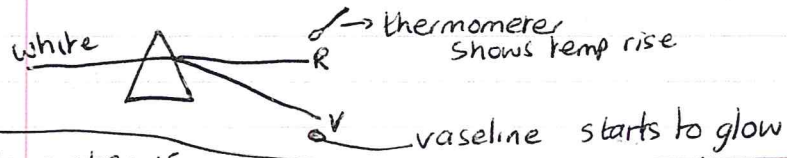 → thermometer
shows temp rise
white
R
V
vaseline starts to glow